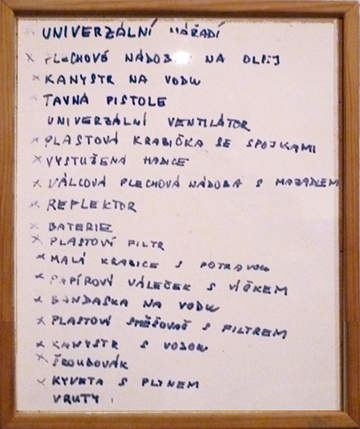 x UNIVERZÁLNÍ NÁŘADÍ
x PLECHOVÉ NÁDOBY NA OLEJ
x KANYSTR NA VODU
x TAVNÁ PISTOLE
UNIVERZÁLNÍ VENTILÁTOR
x PLASTOVÁ KRABIČKA SE SPOJKAMI
x VYSTUŽENÁ HADICE
x VÁLCOVÁ PLECHOVÁ NÁDOBA S MAZADLEM
x REFLEKTOR
x BATERIE
x PLASTOVÝ FILTR
x MALÁ KRABICE S POTRAVOU
x PAPÍROVÝ VÁLEČEK S VÍČKEM
x BANDASKA NA VODU
x PLASTOVÝ SMĚŠOVAČ S FILTREM
x KANYSTR S VODOU
x ŠROUBOVÁK
x KYVETA S PLYNEM
VRUTY